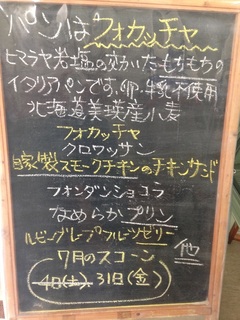 パンはフォカッチャ
ヒマラヤ岩塩の効いたもちもちの
イタリアパンです。卵、牛乳不使用
北海道美瑛産小麦
フォカッチャ
クロワッサン
自家製スモークチキンのチキンサンド
フォンダンショコラ
なめらかプリン
ルビーグレープフルーツゼリー
他
7月のスコーン
4日(土) 31日(金)